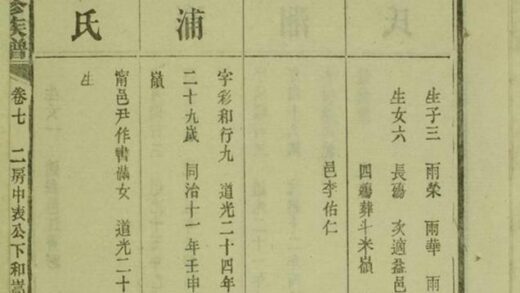 氏
生子三 雨榮 雨華 雨
生女六 長殤 次適益邑
四殤葬斗米嶺
邑李佑仁
湘
浦
字彩和行九 道光二十四年
二十九歲 同治十一年壬申
嶺
氏
甯邑尹作書滿女 道光二十
生
修族譜
卷七 二房申衷公下和嵩